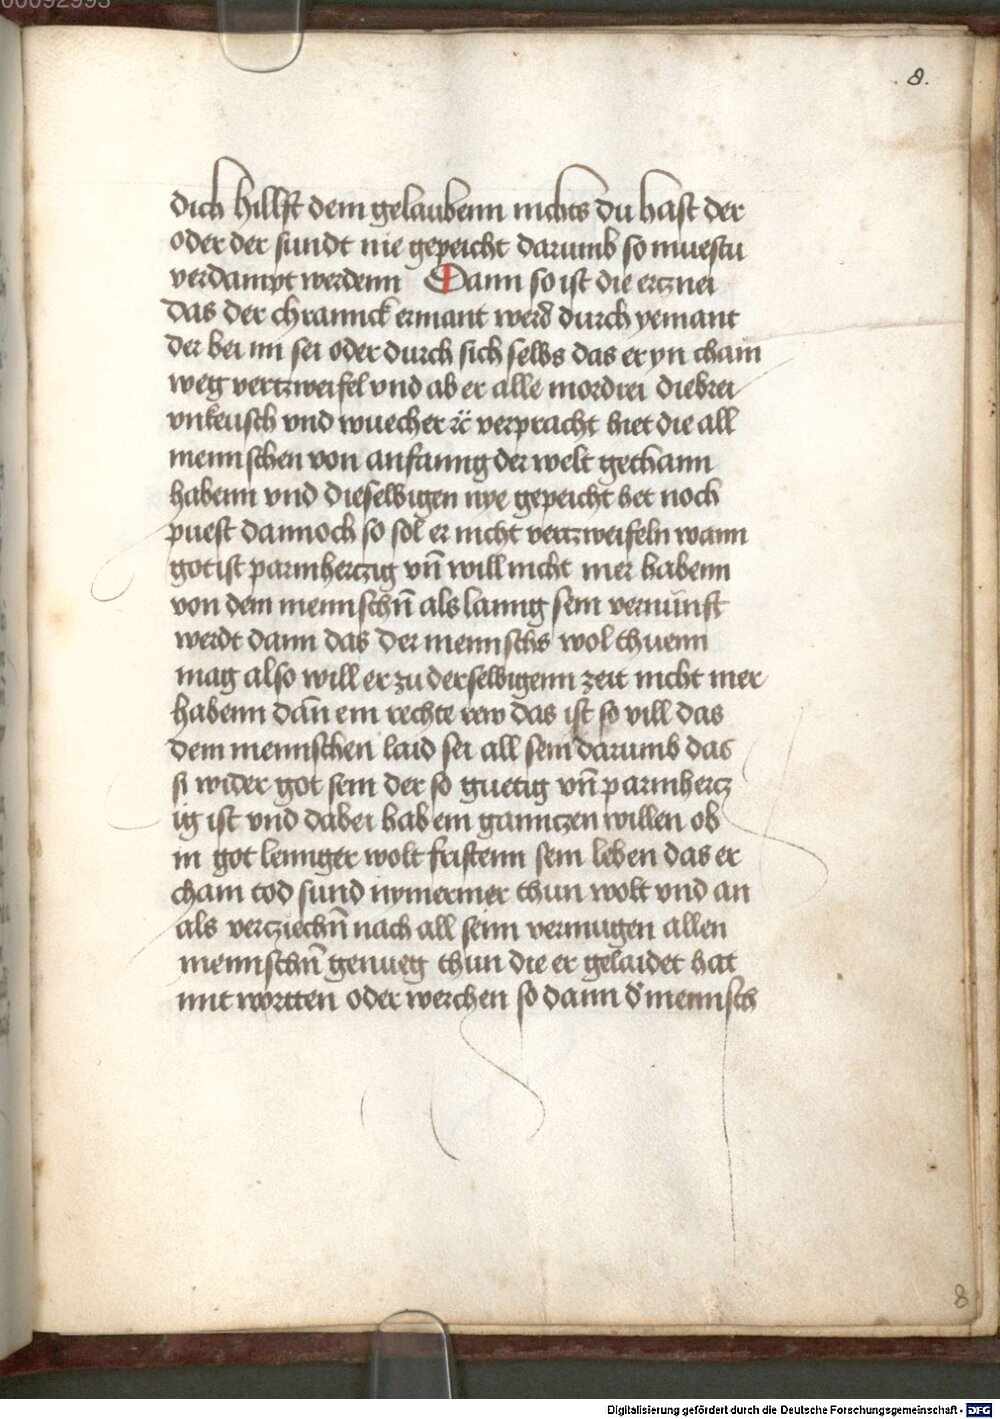 00092995
8.
dich hillft dem gelaubenn nichts du hast der
oder der sundt nie gepeicht darumb so muestu
verdampt werdenn Dann so ist die ertznei
das der chrannck ermant werd durch yemant
der bei im sei oder durch sich selbs das er yn chain
weg vertzweifel vnd ab er alle mordrei diebrei
vnkeusch vnd wuecher ꝛc verpracht hiet die all
mennschen von anfanng der welt gethann
habenn vnd dieselbigen nye gepeicht het noch
puest dannoch so sol er nicht vertzweifeln wann
got ist parmhertzig vn̄ will nicht mer habenn
von dem mennschn̄ als lanng sein vernunft
werdt dann das der mennschs wol thuenn
mag also will er zu derselbigenn zeit nicht mer
habenn dan̄ ein rechte rew das ist so vill das
dem mennschen laid sei all sein darumb das
si wider got sein der so guetig vn̄ parmhertz
ig ist vnd dabei hab ein ganntzen willen ob
in got lennger wolt fristenn sein leben das er
chain tod sund nymermer thun wolt vnd an
als verziechn̄ nach all seinn vermugen allen
mennschn̄ genueg thun die er gelaidet hat
mit wortten oder werchen so dann d' mennsch
8
Digitalisierung gefördert durch die Deutsche Forschungsgemeinschaft - DFG